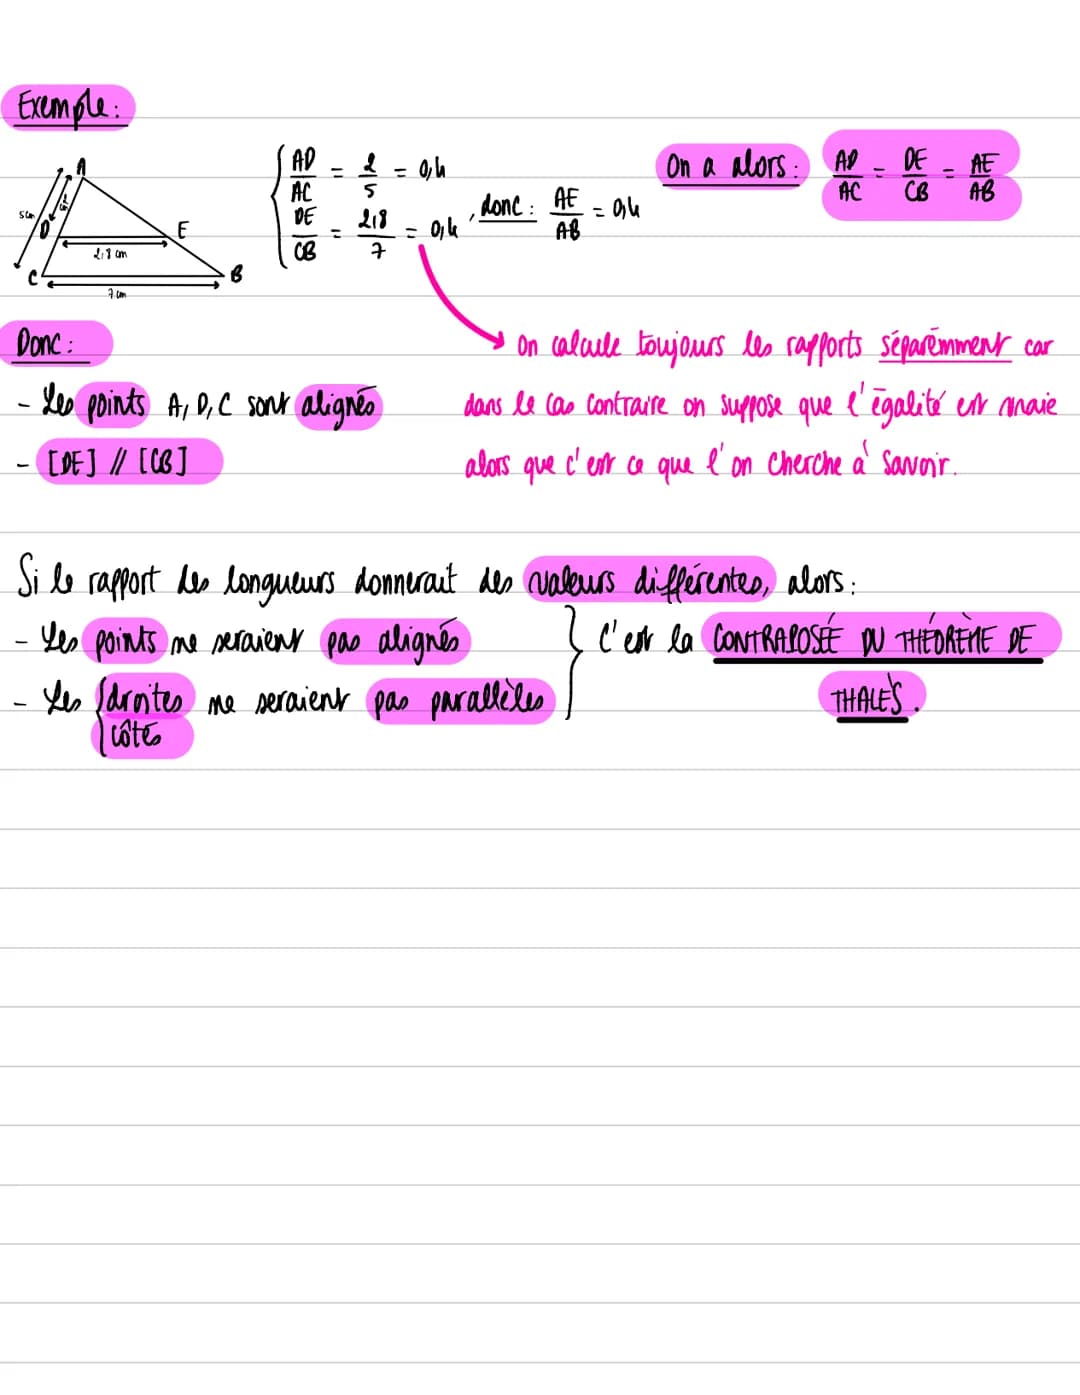 Exemple :
A
5cm
2cm
D
E
2,8 cm
C
B
7 cm
{ AD/AC = 2/5 = 0,4
DE/CB = 2,8/7 = 0,4 , donc : AE/AB = 0,4
On a alors : AD/AC = DE/CB = AE/AB
Donc :
- Les points A, D, C sont alignés
- [DE] // [CB]
On calcule toujours les rapports séparemment car
dans le cas contraire on suppose que l'égalité est vraie
alors que c'est ce que l'on cherche à savoir.
Si le rapport des longueurs donnerait des valeurs différentes, alors :
- Les points ne seraient pas alignés
- Les { droites ne seraient pas parallèles
côtés
} C'est la CONTRAPOSÉE DU THÉORÈME DE
THALÈS.